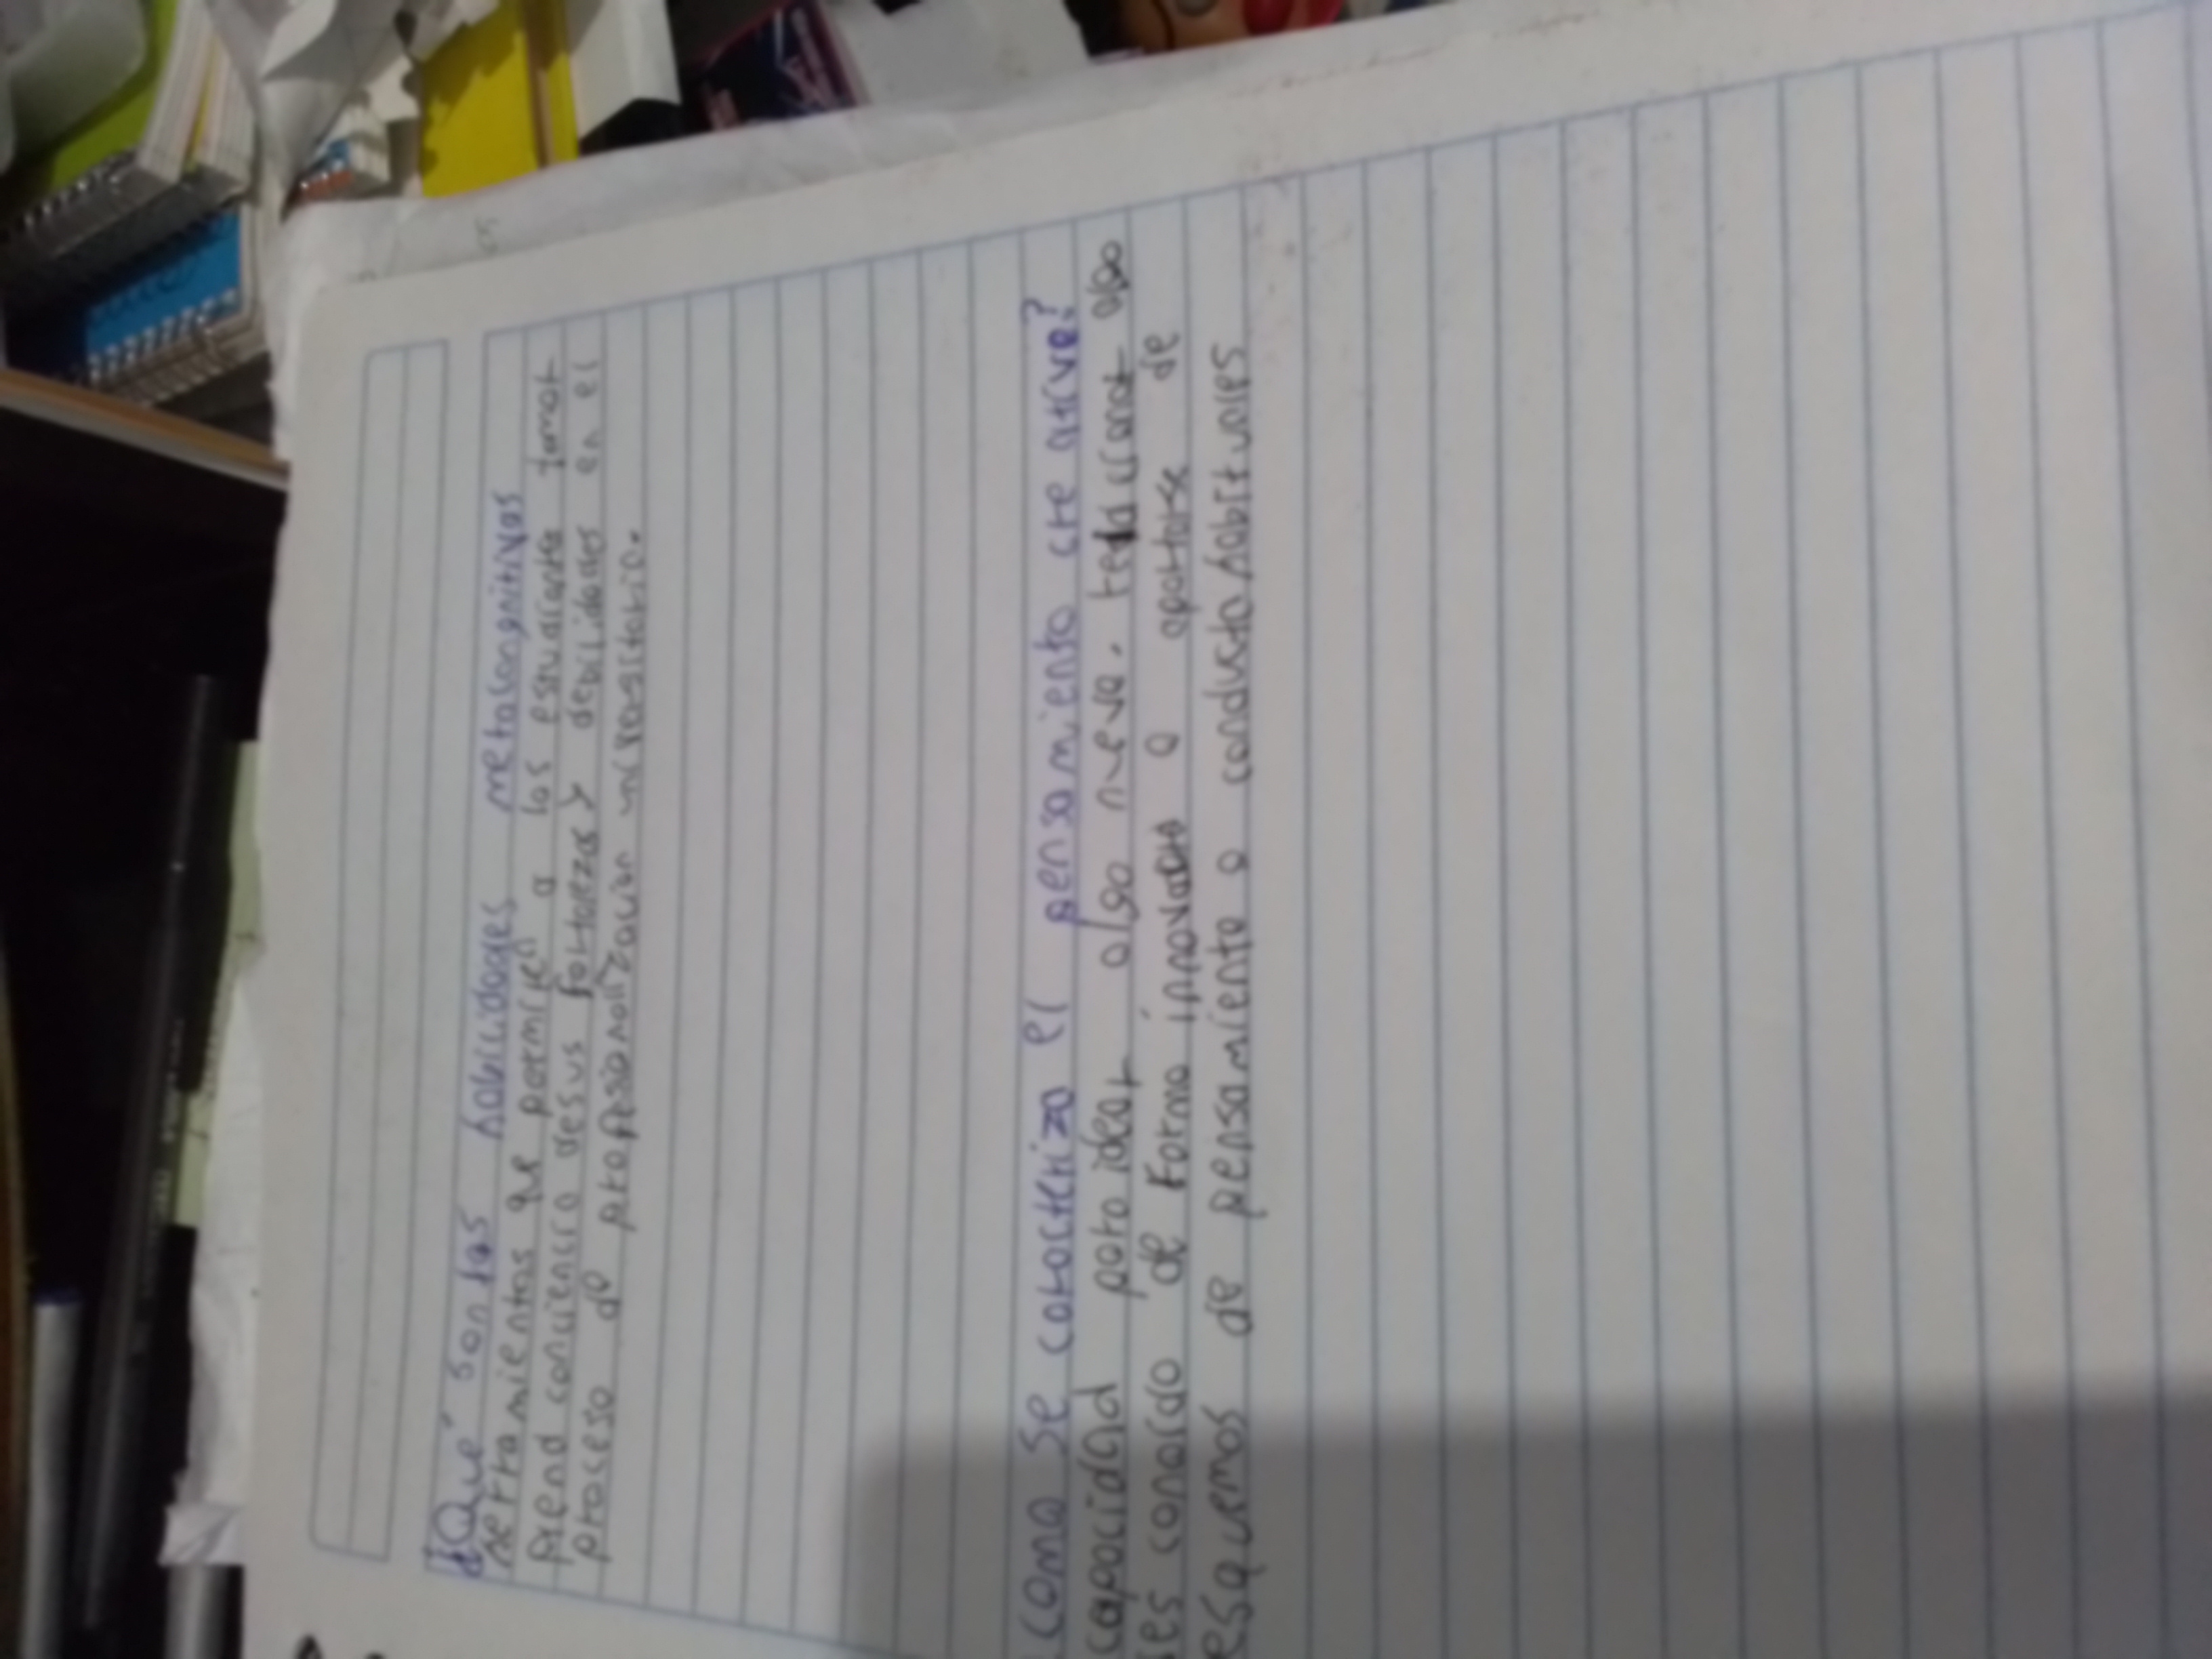 ¿Qué son las habilidades metacongnitivas
herramientas que permien a los estudiante tomar
prend conciencia desus fortarezas y debilidades en el
proceso de profesionalización universitario.
como se caracteriza el pensamiento cre ativo?
capacidad para idear algo nuevo. relacionar algo
es conocido de forma innovadora o apartarse de
esquemas de pensamiento o conducta habituales